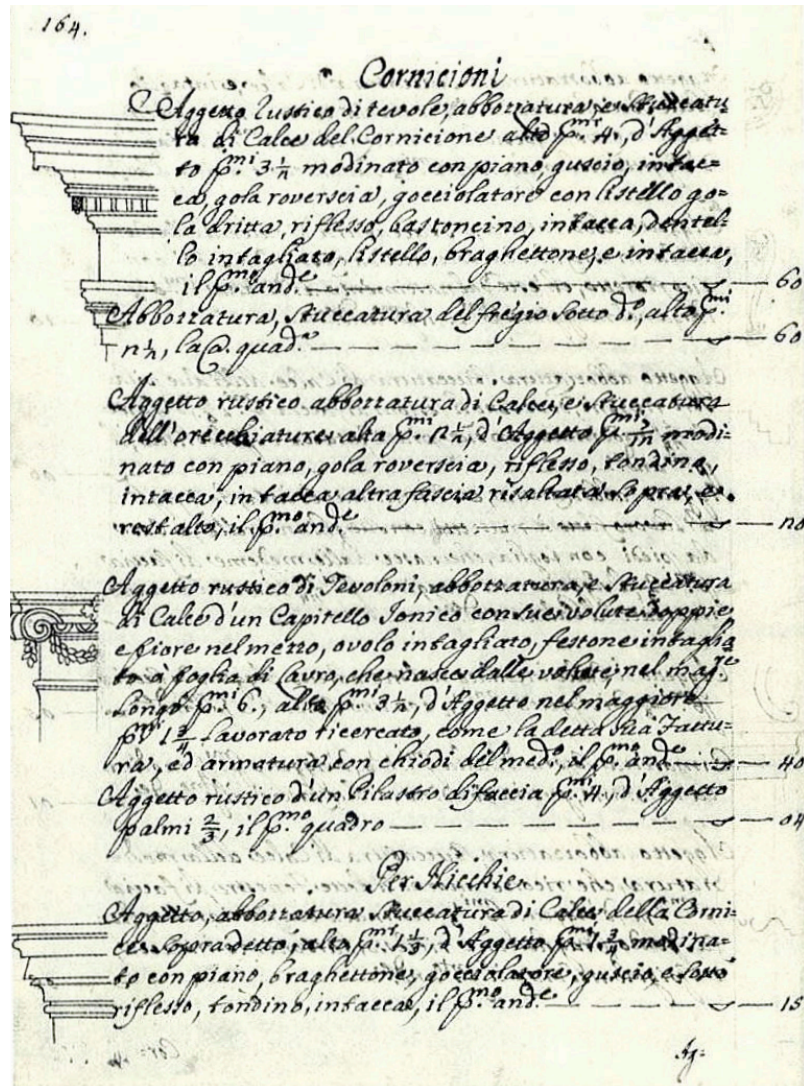 164.
Cornicioni
Aggetto rustico di tevole, abbozzatura, e Stuccatu
ra di Calce del Cornicione alto p.mi 4, d'Agget=
to p.mi 3 1/2 modinato con piano, guscio, intac=
ca, gola roverscia, gocciolatore con listello go=
la dritta, riflesso, bastoncino, intacca, dentel=
lo intagliato, listello, braghettone, e intacca,
il p.mo and.e — 60
Abbozzatura, Stuccatura del fregio sotto d.o, alto p.mi
2 1/2, la C.a quad.a — 60
Aggetto rustico abbozzatura di Calce, e Stuccatura
dell'orecchiature alta p.mi 2 1/2, d'Aggetto p.mi modi=
nato con piano, gola roverscia, riflesso, tondino,
intacca, intacca altra fascia risaltata sopra, e
rest alto, il p.mo and.e — 20
Aggetto rustico di Tevoloni, abbozzatura, e Stuccatura
di Calce d'un Capitello Jonico con sue volute doppie
e fiore nel mezzo, ovolo intagliato, festone intaglia
to à foglia di Lauro, che nasce dalle volute, nel mag.re
Longo p.mi 6., alto p.mi 3 1/2, d'Aggetto nel maggiore
p.mi 1 3/4 Lavorato ricercato, come la detta sua Fattu=
ra, ed armatura con chiodi del med.o, il p.mo and.e — 40
Aggetto rustico d'un Pilastro di faccia p.mi 4, d'Aggetto
palmi 2/3, il p.mo quadro — 04
Per Nicchie
Aggetto, abbozzatura Stuccatura di Calce della Corni=
ce sopradetto, alto p.mi 1 1/3, d'Aggetto p.mi 1 3/4 modina=
to con piano, braghettone, gocciolatore, guscio, e sotto
riflesso, tondino, intacca, il p.mo and.e — 15
Ag=